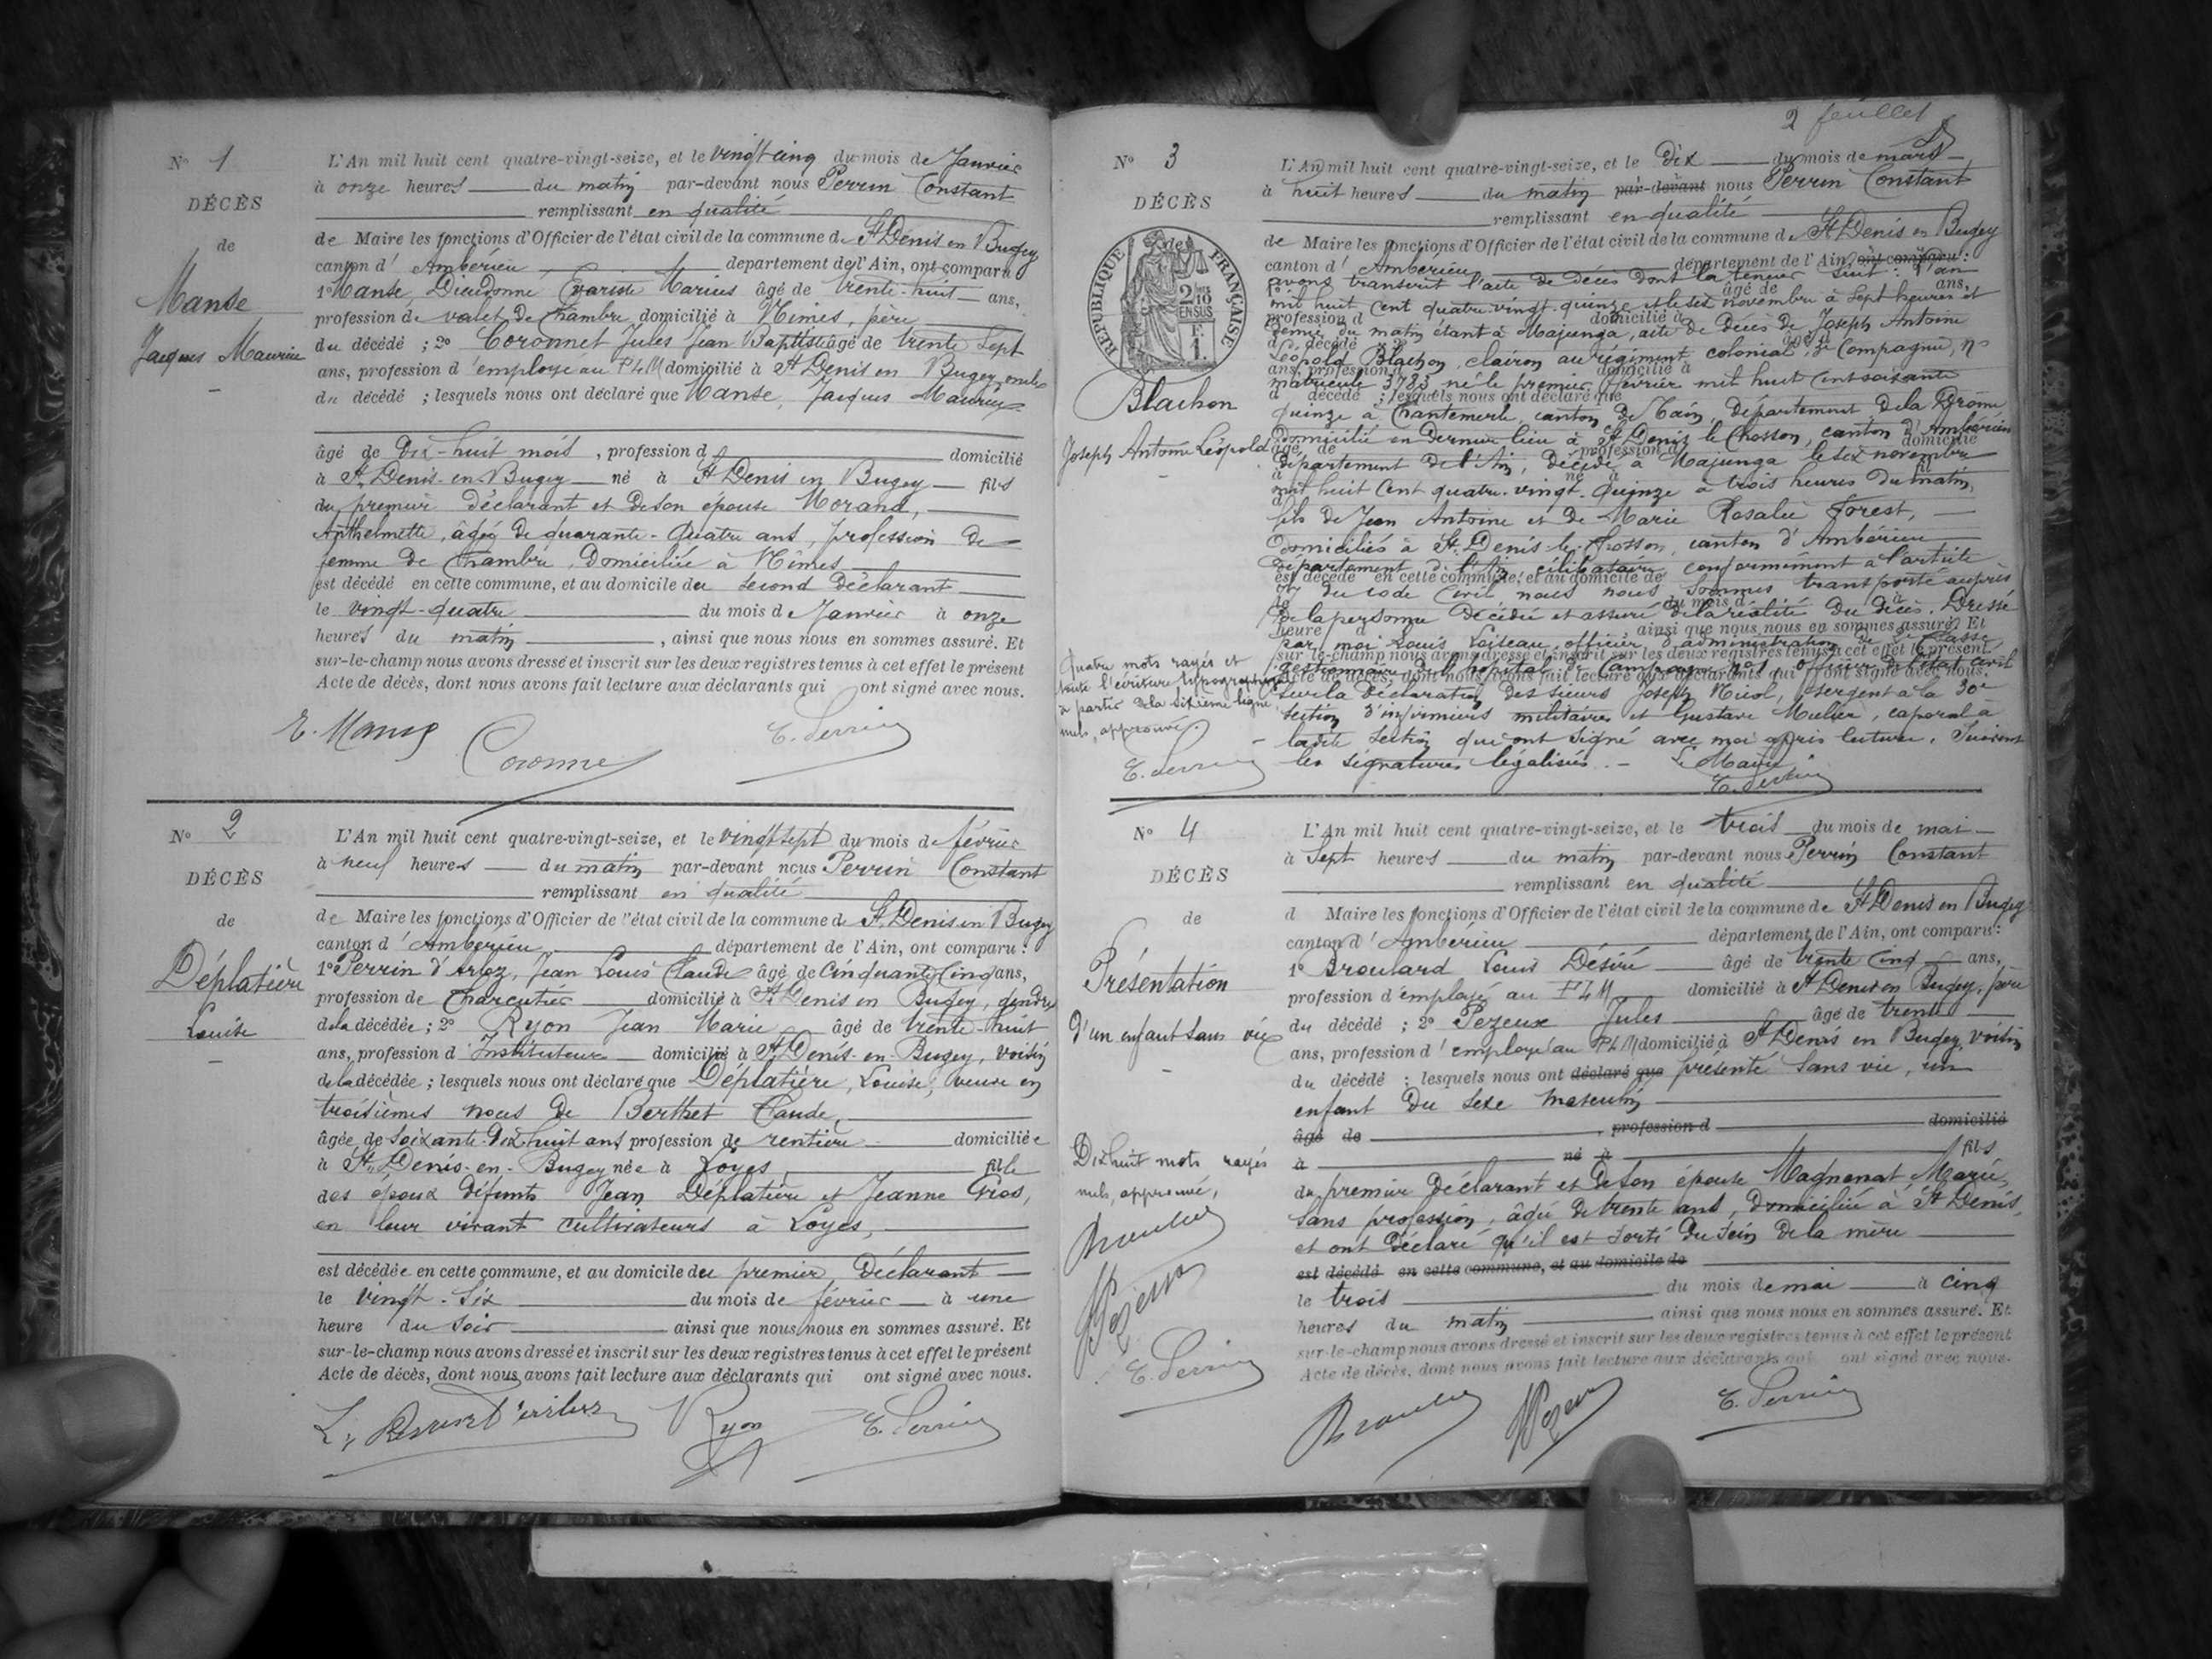 N° 1
DÉCÈS
de
Manse
Jacques Maurice
L'An mil huit cent quatre-vingt-seize, et le vingt cinq du mois de Janvier
à onze heures du matin par-devant nous Perrin Constant
remplissant en qualité
de Maire les fonctions d'Officier de l'état civil de la commune de St Denis en Bugey
canton d'Ambérieu département de l'Ain, ont comparu
1° Manse, Dieudonne Evariste Marius âgé de trente-huit ans,
profession de valet de Chambre domicilié à Nîmes, père
du décédé ; 2° Coronnet Jules Jean Baptiste âgé de trente sept
ans, profession d'employé au PLM domicilié à St Denis en Bugey, oncle
du décédé ; lesquels nous ont déclaré que Manse, Jacques Maurice
âgé de dix-huit mois, profession d domicilié
à St Denis-en-Bugey né à St Denis en Bugey fils
du premier déclarant et de son épouse Morand,
Anthelmette, âgée de quarante-quatre ans, profession de
femme de Chambre, domiciliée à Nîmes
est décédé en cette commune, et au domicile du second déclarant
le vingt-quatre du mois de Janvier à onze
heures du matin, ainsi que nous nous en sommes assuré. Et
sur-le-champ nous avons dressé et inscrit sur les deux registres tenus à cet effet le présent
Acte de décès, dont nous avons fait lecture aux déclarants qui ont signé avec nous.
E. Manse
Coronne
C. Perrin
N° 2
DÉCÈS
de
Déplatière
Louise
L'An mil huit cent quatre-vingt-seize, et le vingt sept du mois de février
à neuf heures du matin par-devant nous Perrin Constant
remplissant en qualité
de Maire les fonctions d'Officier de l'état civil de la commune de St Denis en Bugey
canton d'Ambérieu département de l'Ain, ont comparu :
1° Perrin d'Arloz, Jean Louis Claude âgé de Cinquante Cinq ans,
profession de Charcutier domicilié à St Denis en Bugey, gendre
de la décédée ; 2° Ryon Jean Marie âgé de trente-huit
ans, profession d'Instituteur domicilié à St Denis-en-Bugey, voisin
de la décédée ; lesquels nous ont déclaré que Déplatière, Louise, veuve en
troisièmes noces de Berthet Claude,
âgée de soixante-dix huit ans profession de rentière domiciliée
à St Denis-en-Bugey née à Loyes, fille
des époux défunts Jean Déplatière et Jeanne Gros,
en leur vivant cultivateurs à Loyes,
est décédée en cette commune, et au domicile du premier Déclarant
le vingt-six du mois de février à une
heure du soir ainsi que nous nous en sommes assuré. Et
sur-le-champ nous avons dressé et inscrit sur les deux registres tenus à cet effet le présent
Acte de décès, dont nous avons fait lecture aux déclarants qui ont signé avec nous.
Ryon
C. Perrin
2 feuillet
N° 3
DÉCÈS
de
RÉPUBLIQUE FRANÇAISE
2/10 EN SUS
Blachon
Joseph Antoine Léopold
Quatre mots rayés et
toute l'écriture typographique
à partir de la sixième ligne
nuls, approuvés.
C. Perrin
L'An mil huit cent quatre-vingt-seize, et le dix du mois de mars
à huit heures du matin par-devant nous Perrin Constant
remplissant en qualité
de Maire les fonctions d'Officier de l'état civil de la commune de St Denis en Bugey
canton d'Ambérieu département de l'Ain, ont comparu :
avons transcrit l'acte de décès dont la teneur suit : l'an
mil huit cent quatre-vingt-quinze et le six novembre à sept heures et
demie du matin étant à Majunga, acte de décès de Joseph Antoine
Léopold Blachon, clairon au régiment colonial, Compagnie, n°
matricule 3783 né le premier février mil huit cent soixante
quinze à Chantemerle, canton de Tain, département de la Drôme
domicilié en dernier lieu à St Denis le Chosson, canton d'Ambérieu
département de l'Ain, décédé à Majunga le six novembre
mil huit cent quatre-vingt-quinze à trois heures du matin,
fils de Jean Antoine et de Marie Rosalie Forest,
domiciliés à St Denis-le-Chosson, canton d'Ambérieu
département de l'Ain, célibataire, conformément à l'article
77 du code Civil, nous nous sommes transporté auprès
de la personne décédée et assuré de la réalité du décès. Dressé
par moi Louis Loiseau, officier d'administration de 2e Classe
gestionnaire de l'hôpital de Campagne n° 1 officier de l'état civil
sur la déclaration des sieurs Joseph Nicol, sergent à la 30e
section d'infirmiers militaires et Gustave Mulier, caporal à
ladite section qui ont signé avec moi après lecture. Suivent
les signatures légalisées. - Le Maire
C. Perrin
N° 4
DÉCÈS
de
Présentation
d'un enfant sans vie
Dix huit mots rayés
nuls, approuvé,
C. Perrin
L'An mil huit cent quatre-vingt-seize, et le trois du mois de mai
à Sept heures du matin par-devant nous Perrin Constant
remplissant en qualité
d Maire les fonctions d'Officier de l'état civil de la commune de St Denis en Bugey
canton d'Ambérieu département de l'Ain, ont comparu :
1° Broulard Louis Désiré âgé de trente cinq ans,
profession d'employé au PLM domicilié à St Denis en Bugey, père
du décédé ; 2° Pezeux Jules âgé de trente
ans, profession d'employé au PLM domicilié à St Denis en Bugey, voisin
du décédé ; lesquels nous ont déclaré que présenté sans vie, un
enfant du sexe masculin
âgé de , profession d domicilié
à né à fils
du premier déclarant et de son épouse Magnenat Marie,
sans profession, âgée de trente ans, domiciliée à St Denis,
et ont déclaré qu'il est sorti du sein de la mère
est décédé en cette commune, et au domicile de
le trois du mois de mai à cinq
heures du matin ainsi que nous nous en sommes assuré. Et
sur-le-champ nous avons dressé et inscrit sur les deux registres tenus à cet effet le présent
Acte de décès, dont nous avons fait lecture aux déclarants qui ont signé avec nous.
C. Perrin